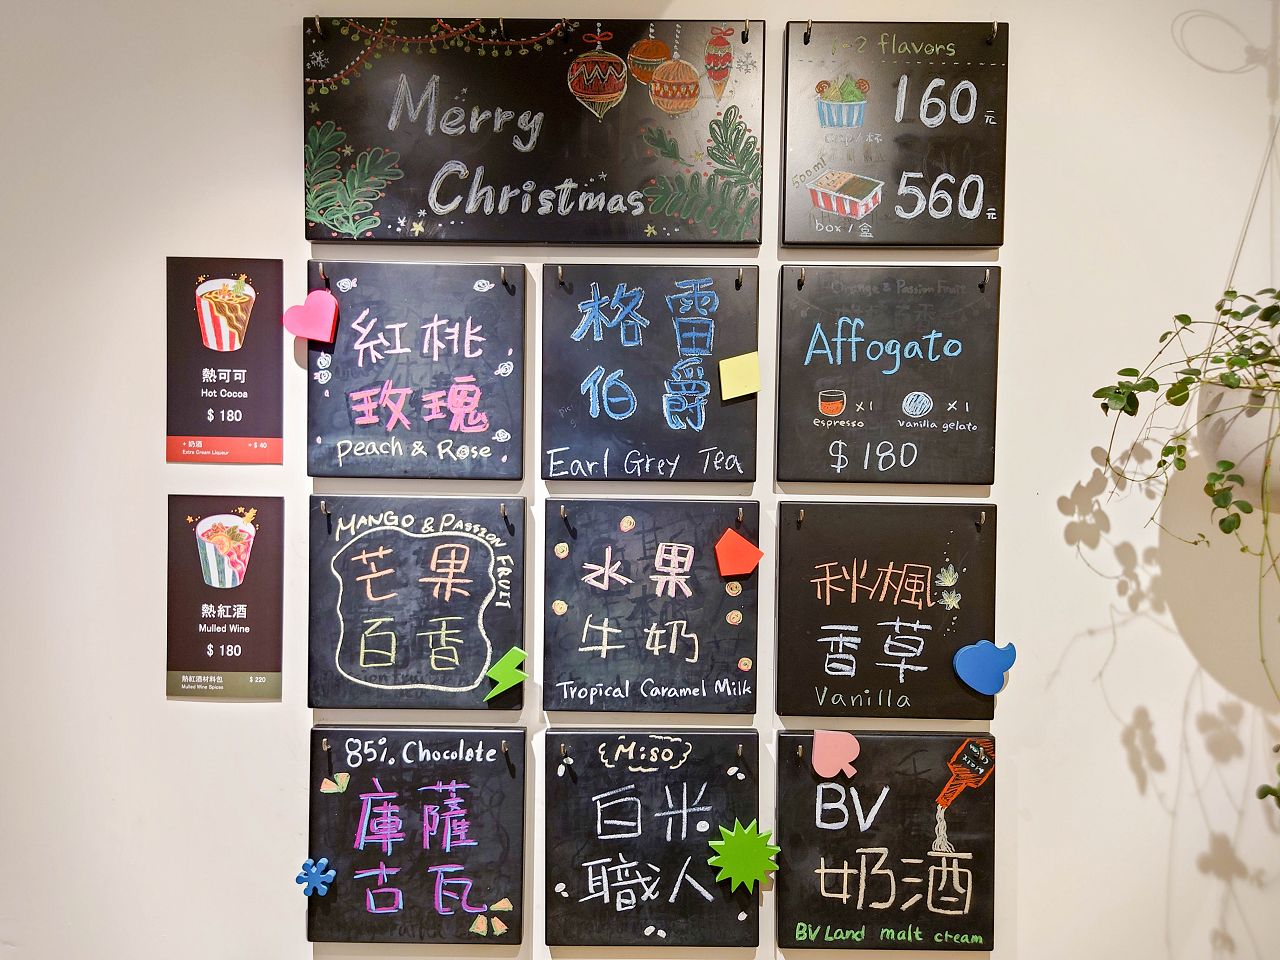 Merry
Christmas
1-2 flavors
160元
cup/杯
500ml
560元
box/盒
熱可可
Hot Cocoa
$ 180
+ 奶酒 + $ 40
Extra Cream Liqueur
紅桃
玫瑰
Peach & Rose
格雷
伯爵
Earl Grey Tea
Orange & Passion Fruit
Affogato
x1 x1
espresso vanilla gelato
$180
熱紅酒
Mulled Wine
$ 180
熱紅酒材料包 $ 220
Mulled Wine Spices
MANGO & PASSION FRUIT
芒果
百香
水果
牛奶
Tropical Caramel Milk
秋楓
香草
Vanilla
85% Chocolate
庫薩
古瓦
Miso
白米
職人
BV
奶酒
BV Land malt cream